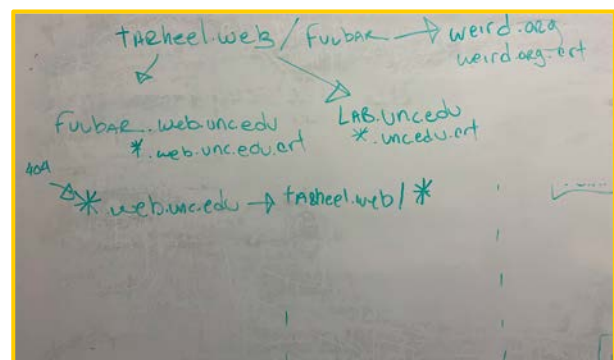 tARheel.web / FUUBAR → weird.org
weird.org.crt
FUUBAR.web.unc.edu
*.web.unc.edu.crt
LAB.unc.edu
*.unc.edu.crt
404
* web.unc.edu → tARheel.web/*